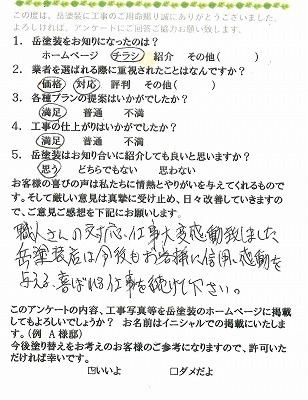 この度は、岳塗装に工事のご用命賜り誠にありがとうございました。
よろしければ、アンケートにご回答ご協力お願い致します。
1. 岳塗装をお知りになったのは？
ホームページ チラシ 紹介 その他( )
2. 業者を選ばれる際に重視されたことはなんですか？
価格 対応 評判 その他( )
3. 各種プランの提案はいかがでしたか？
満足 普通 不満
4. 工事の仕上がりはいかがでしたか？
満足 普通 不満
5. 岳塗装はお知り合いに紹介しても良いと思いますか？
思う どちらでもない 思わない
お客様の喜びの声は私たちに情熱とやりがいを与えてくれるものです。
そして厳しい意見は真摯に受け止め、日々改善していきますので、
ご意見ご感想を下記にお願いします。
職人さんの対応、仕事大変感動致しました
岳塗装店は今後もお客様に信用、感動を
与える、喜ばれる仕事を続け下さい。
このアンケートの内容、工事写真等を岳塗装のホームページに掲載
してもよろしいでしょうか？ お名前はイニシャルでの掲載にいたしま
す。(例 A様邸)
今後塗り替えをお考えのお客様のご参考になりますので、許可いた
だければ幸いです。
☑いいよ □ダメだよ